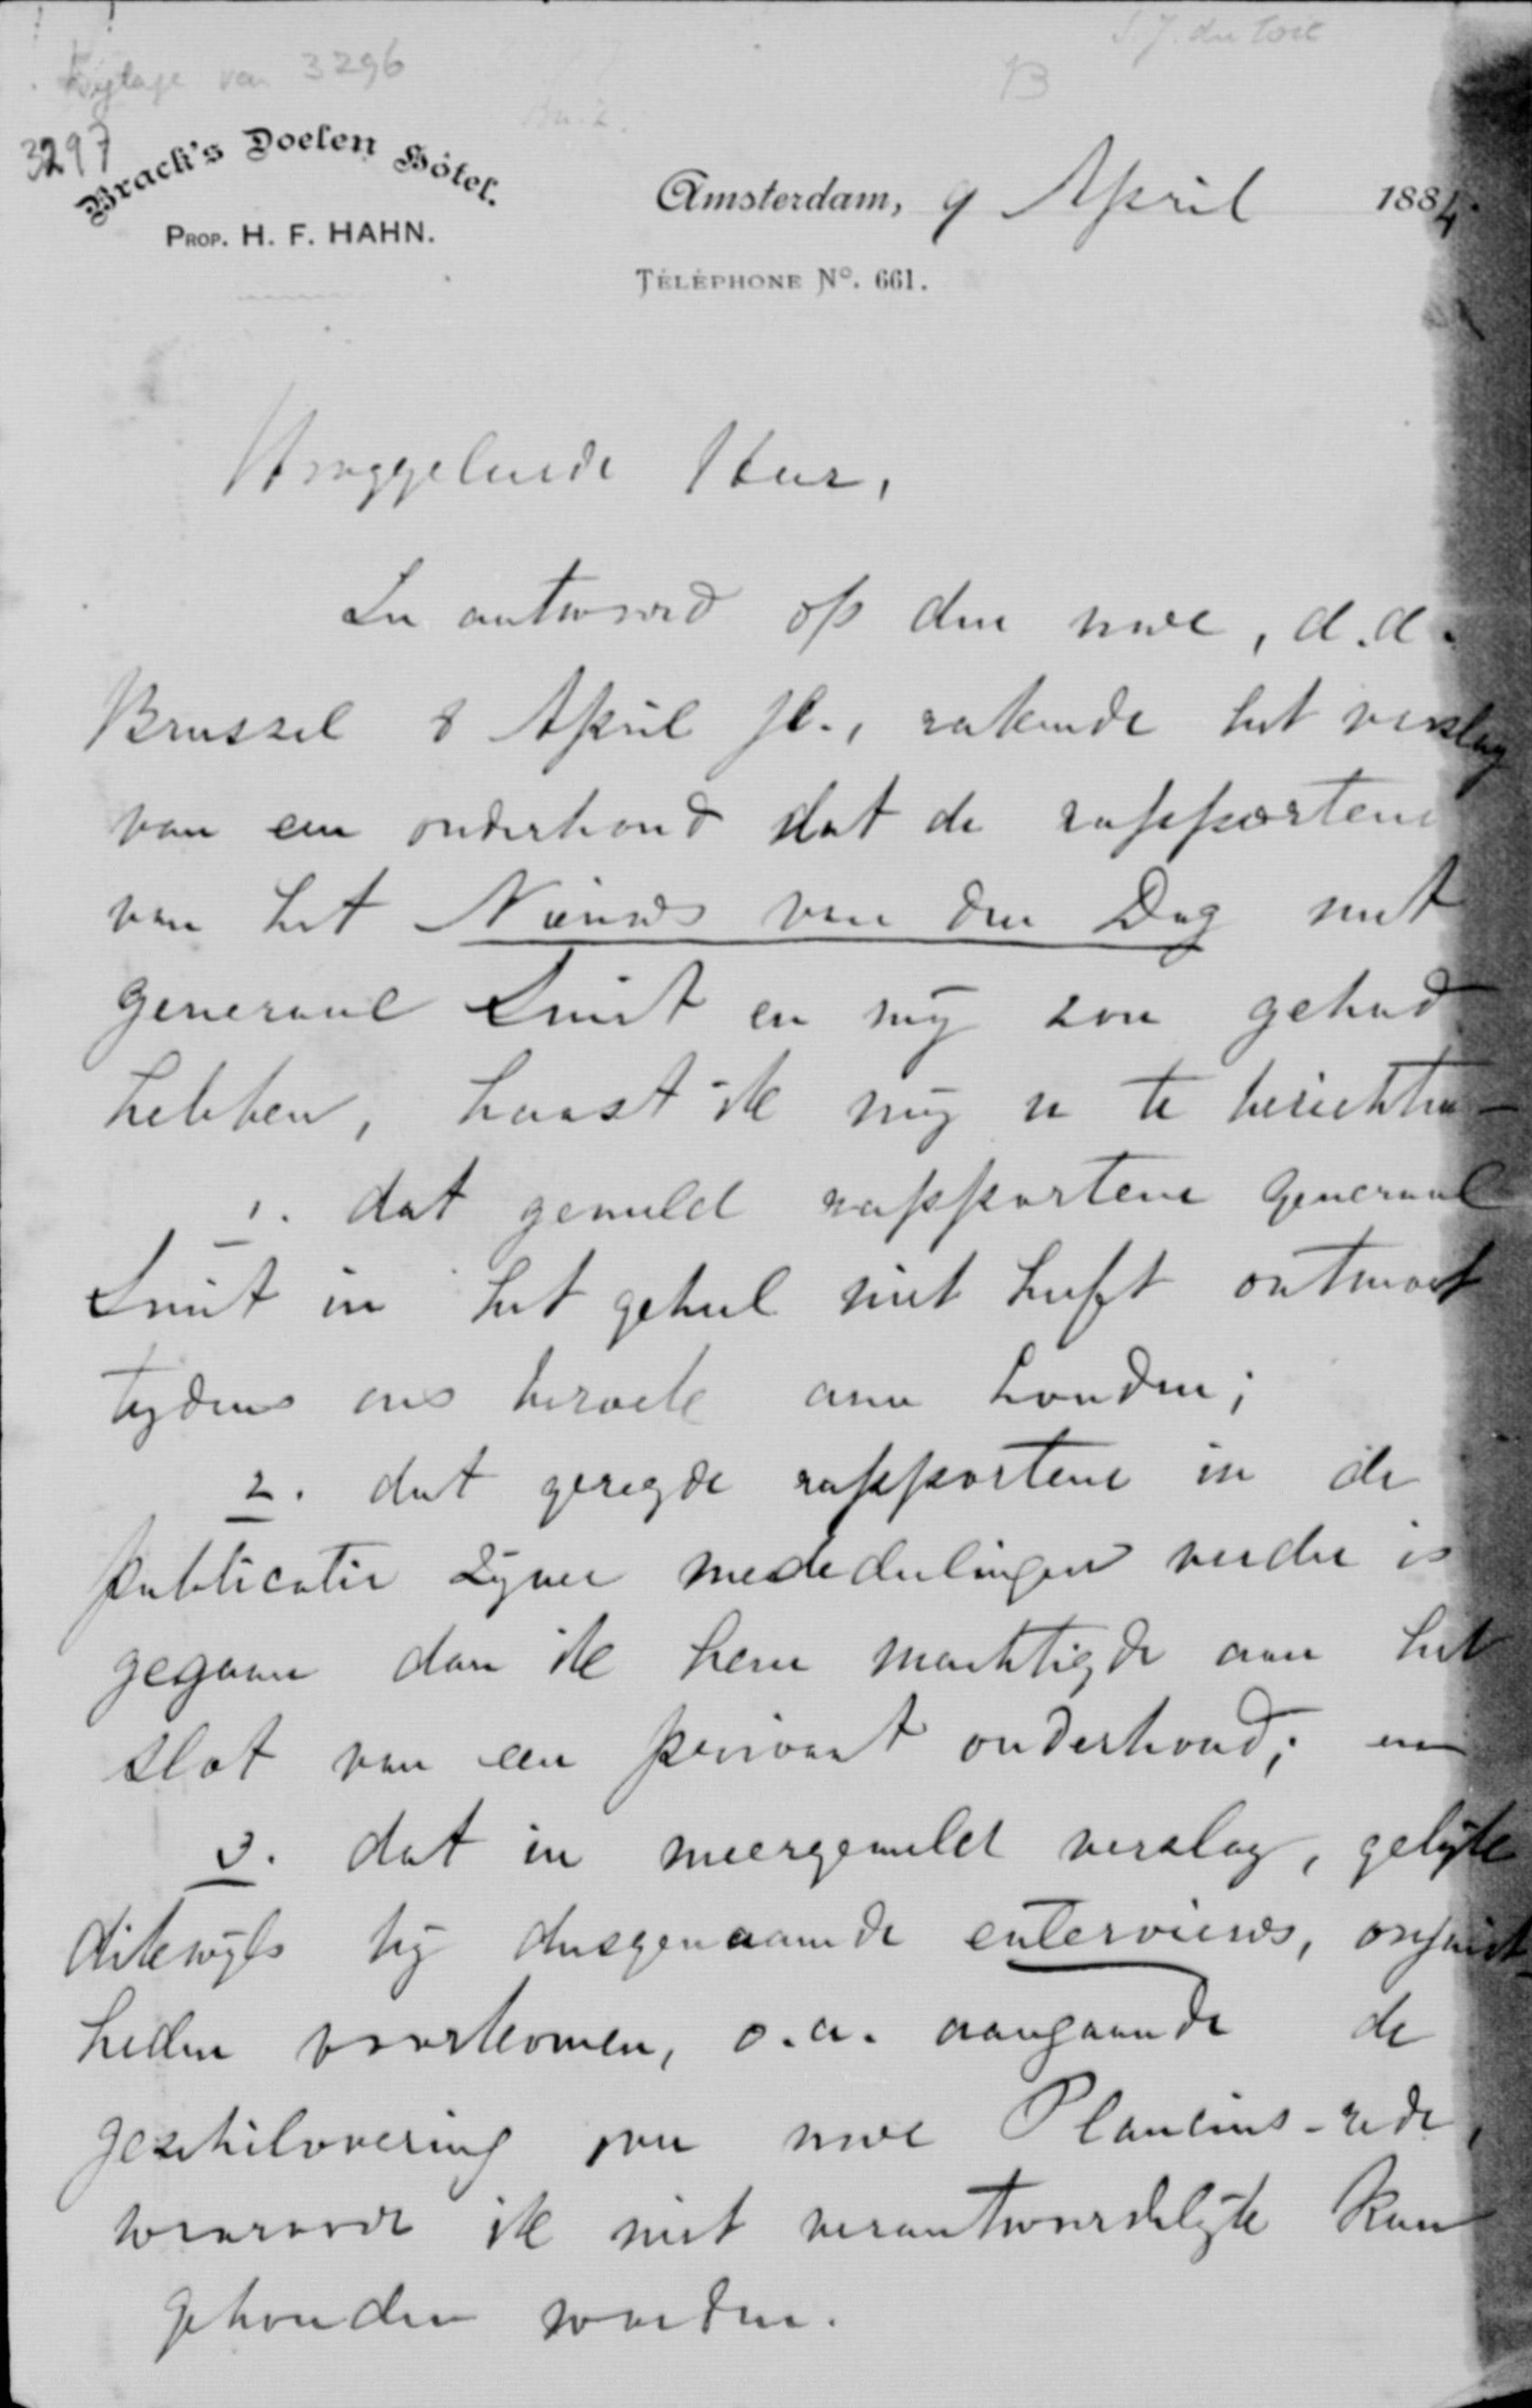 S. J. du Toit
Bijlage van 3296
B
3297
Brack's Doelen Hôtel.
PROP. H. F. HAHN.
Amsterdam, 9 April 1884.
TÉLÉPHONE No. 661.
Hooggeleerde Heer,
In antwoord op den uwe, d.d.
Brussel 8 April jl., rakende het verslag
van een onderhoud dat de rapporteur
van het Nieuws van den Dag met
Generaal Smit en mij zou gehad
hebben, haast ik mij u te berichten –
1. dat gemeld rapporteur Generaal
Smit in het geheel niet heeft ontmoet
tijdens ons bezoek aan Londen;
2. dat gezegde rapporteur in de
publicatie zijner mededeelingen verder is
gegaan dan ik hem machtigde aan het
slot van een privaat onderhoud; en
3. dat in meergemeld verslag, gelijk
dikwijls bij dusgenaamde enterviews, onjuist-
heden voorkomen, o.a. aangaande de
geschilvoering over uwe Plancius-rede,
waarvoor ik niet verantwoordelijk kan
gehouden worden.